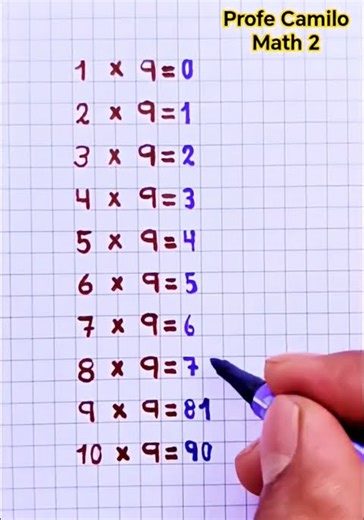 Profe Camilo
Math 2
1 × 9 = 0
2 × 9 = 1
3 × 9 = 2
4 × 9 = 3
5 × 9 = 4
6 × 9 = 5
7 × 9 = 6
8 × 9 = 7
9 × 9 = 81
10 × 9 = 90